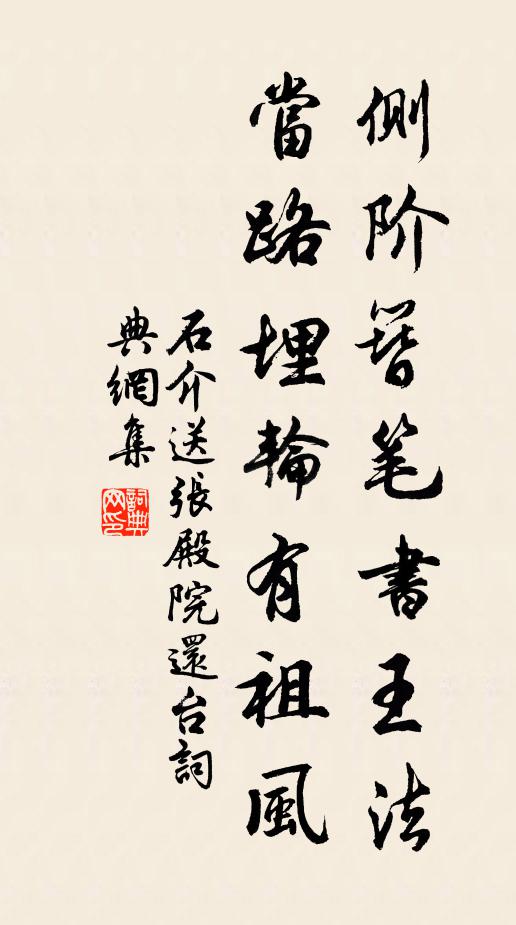 側阶簪笔書王法
當路埋輪有祖風
石介送張殿院還台詞
典網集
詞典
网印